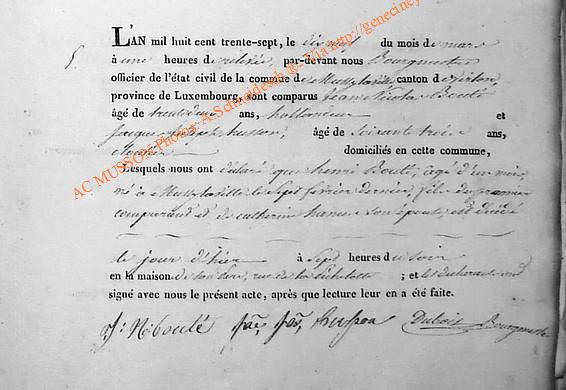 5
L'AN mil huit cent trente-sept, le dix neuf du mois de mars
à une heures de relevée, par-devant nous Bourgmestre
officier de l'état civil de la commune de Mussy la ville canton de Virton,
province de Luxembourg, sont comparus Jean Nicolas Bouté
âgé de trente deux ans, et
Jacques Joseph husson, âgé de soixante trois ans,
domiciliés en cette commune,
Lesquels nous ont déclaré que henri Bouté, agé d'un mois
né à Mussy la ville le sept février dernier, fils du premier
comparant et de catherine son épouse, est décédé
le jour d'hier à sept heures du soir
en la maison de son père, rue de la ; et les déclarants ont
signé avec nous le présent acte, après que lecture leur en a été faite.
J: N: Bouté husson Dubois Bourgmestre
AC MUSSON Photos: A Schneidesch &c. Via http://geneciney